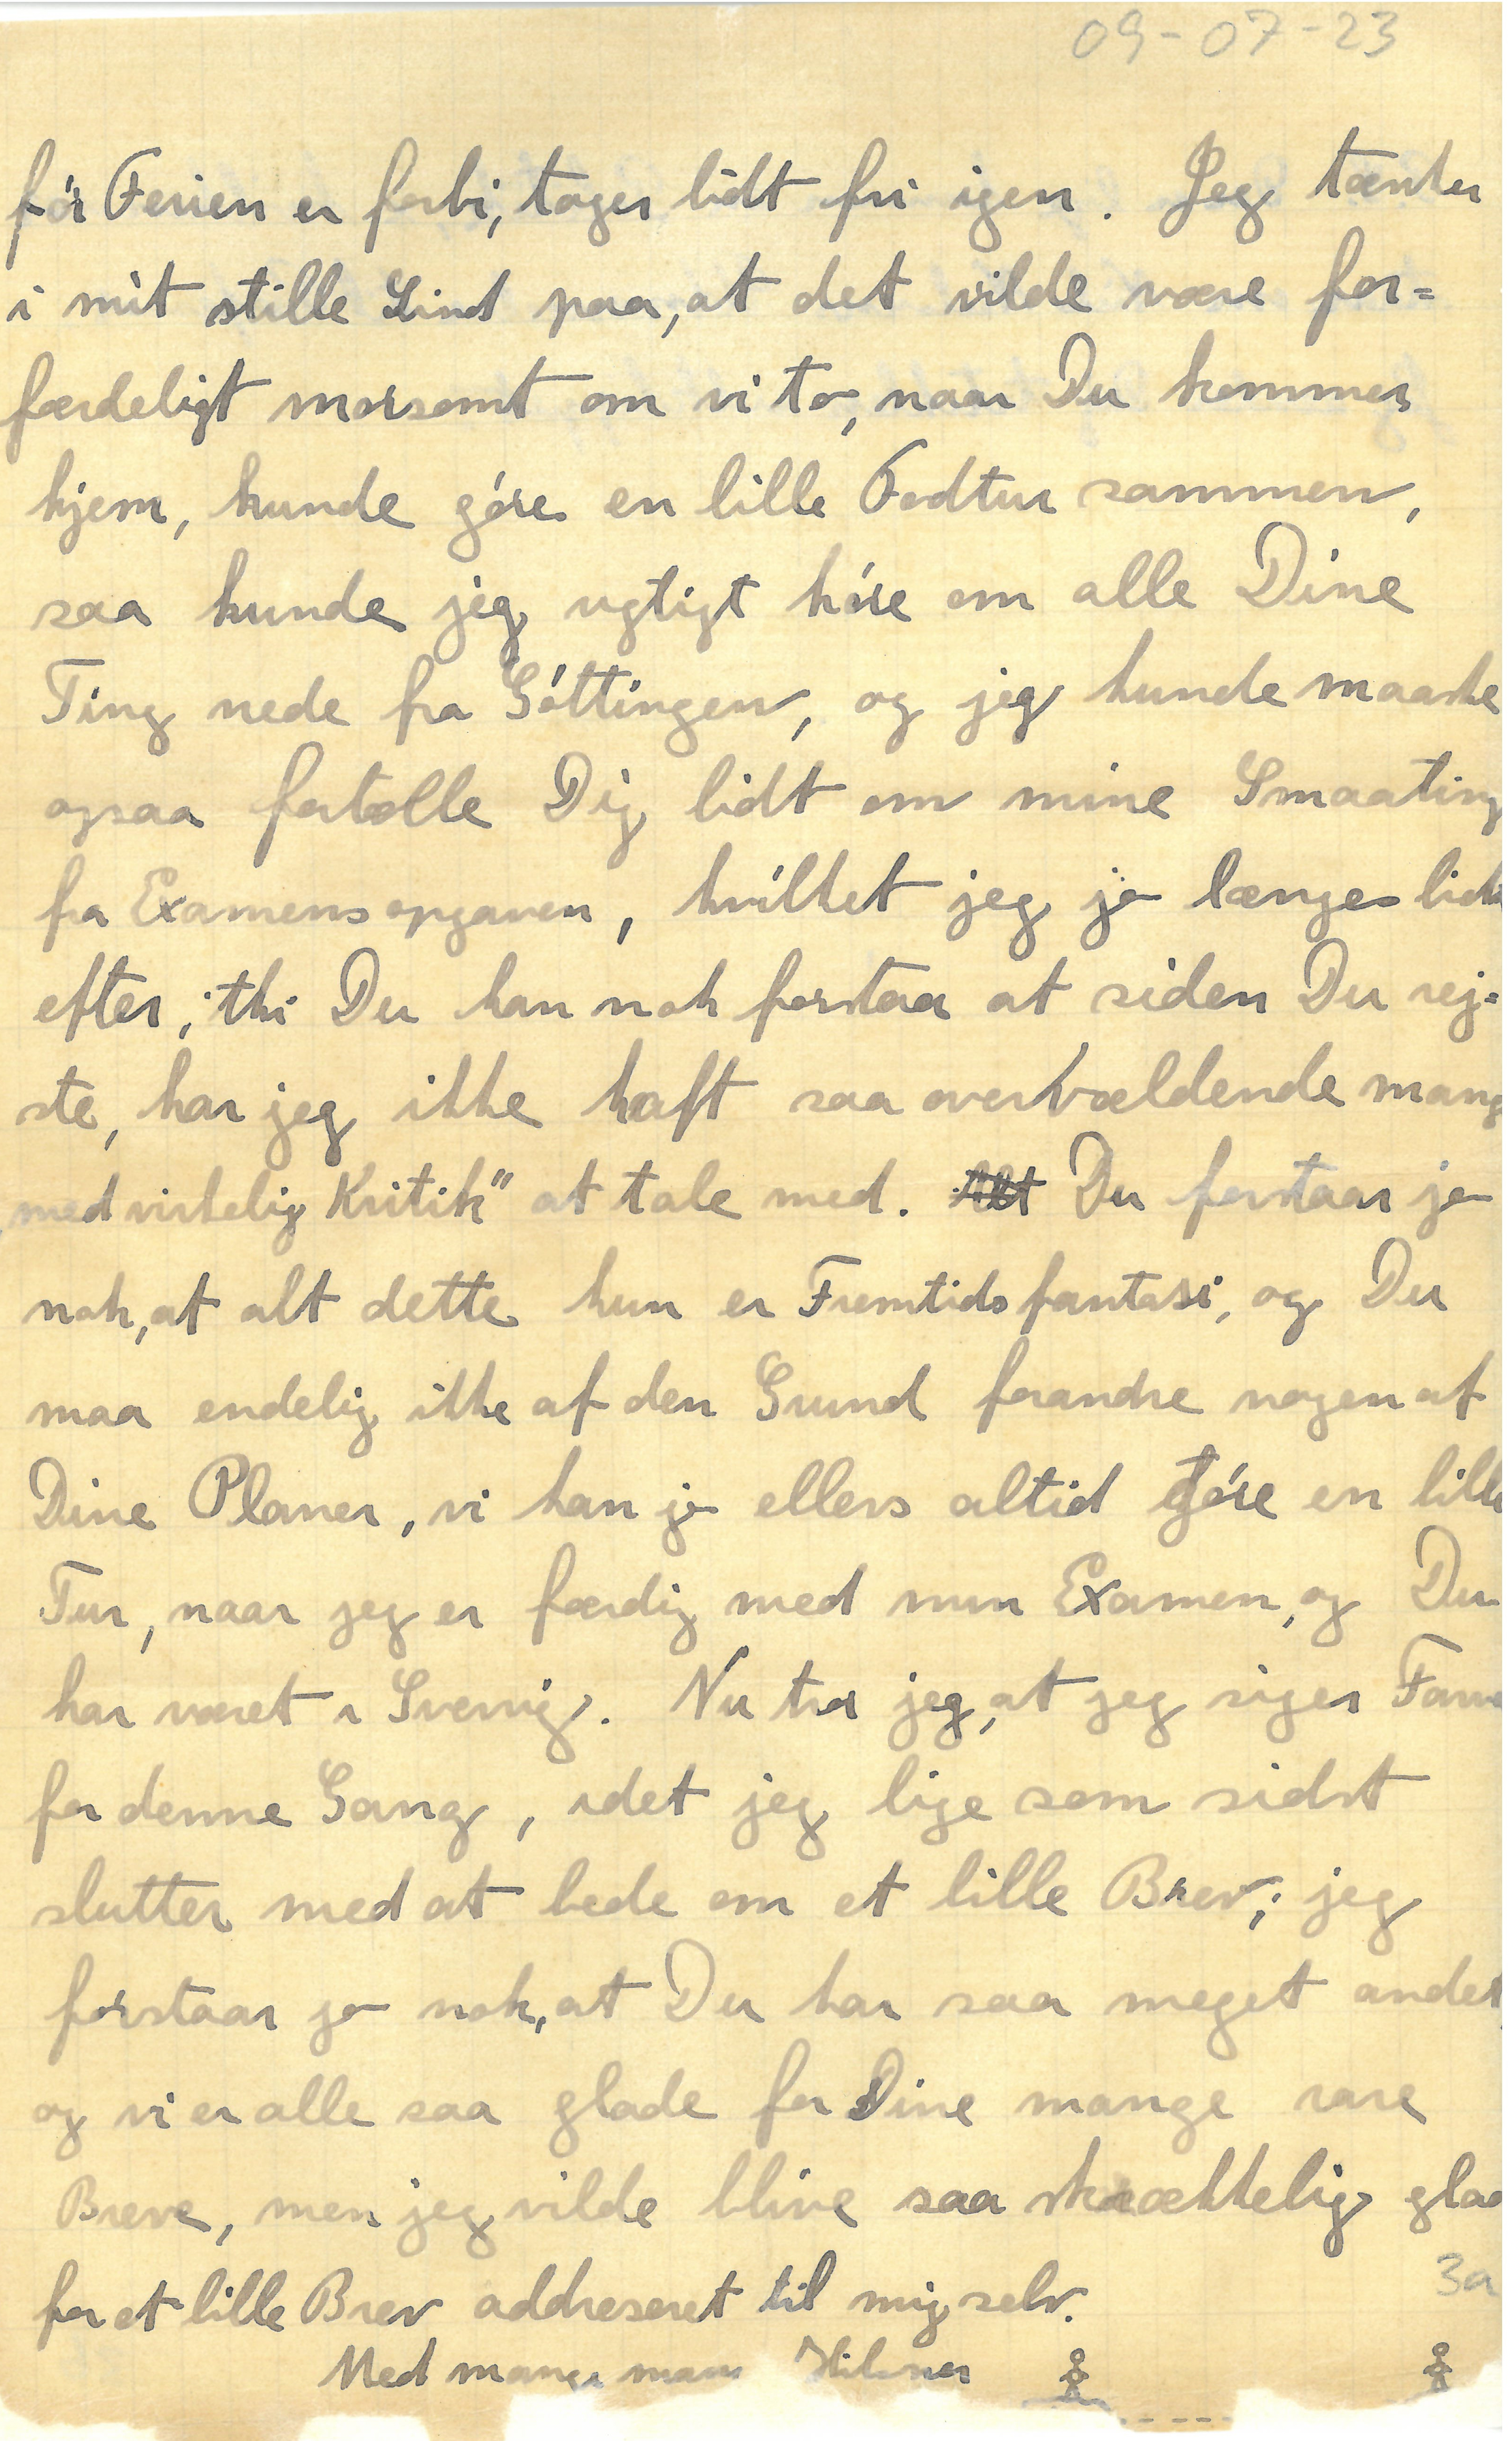 09-07-23
før Ferien er forbi, tager lidt fri igen. Jeg tænker
i mit stille Sind paa, at det vilde være for=
færdeligt morsomt om vi to, naar Du kommer
hjem, kunde gøre en lille Fodtur sammen,
saa kunde jeg rigtigt høre om alle Dine
Ting nede fra Göttingen, og jeg kunde maaske
ogsaa fortælle Dig lidt om mine Smaating
fra Examensopgaven, hvilket jeg jo længes lidt
efter; thi Du kan nok forstaa at siden Du rej=
ste, har jeg ikke haft saa overvældende mang
„med virkelig Kritik" at tale med. Alt Du forstaar jo
nok, at alt dette kun er Fremtidsfantasi, og Du
maa endelig ikke af den Grund forandre nogen af
Dine Planer, vi kan jo ellers altid gøre en lille
Tur, naar jeg er færdig med min Examen, og Du
har været i Sverrig. Nu tror jeg, at jeg siger Farve
for denne Gang, idet jeg lige som sidst
slutter med at bede om et lille Brev; jeg
forstaar jo nok, at Du har saa meget andet,
og vi er alle saa glade for Dine mange rare
Breve, men jeg vilde blive saa skrækkelig glad
for et lille Brev addreseret til mig selv.
3a
Med mange mange Hilsner